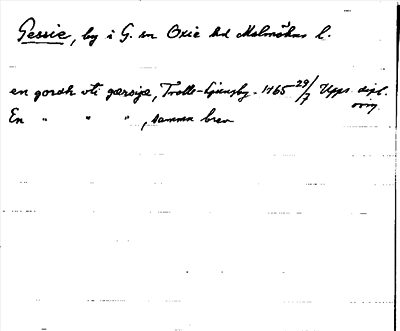 Gessie, by i G. sn Oxie hd Malmöhus l.
en gordh vti gærsiæ, Trolle-Ljungby. 1465 29/7 Upps. dipl. orig.
En " " ", samma brev